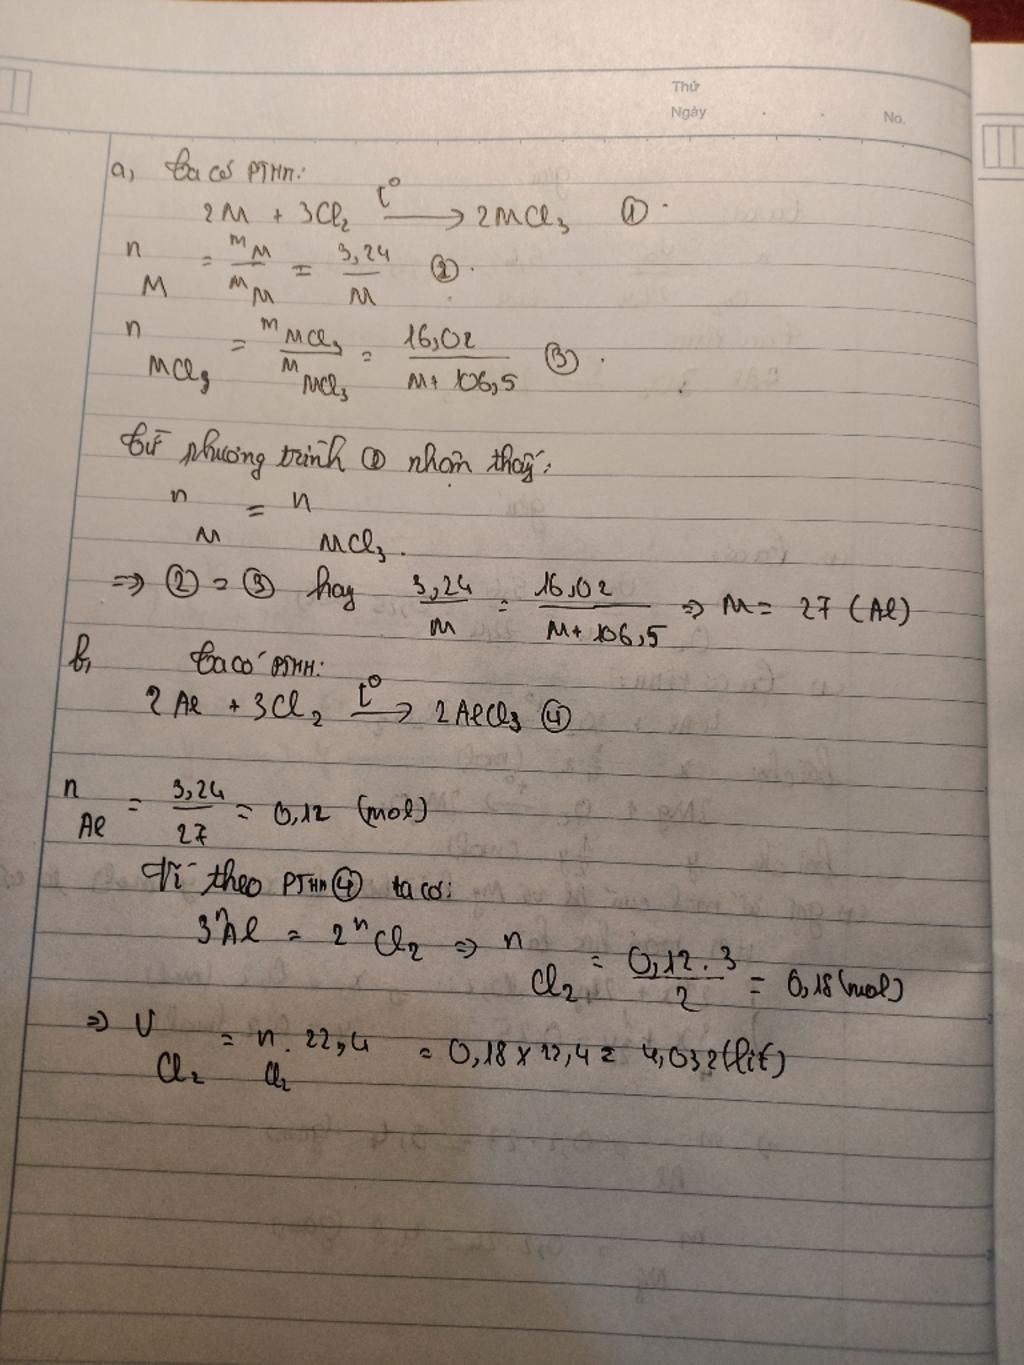 Thứ
Ngày . . No.
a, ta có PTHH:
2M + 3Cl₂ —t°→ 2MCl₃ ①.
n_M = m_M/M_M = 3,24/M ②.
n_MCl₃ = m_MCl₃/M_MCl₃ = 16,02/M+106,5 ③.
từ phương trình ① nhận thấy:
n_M = n_MCl₃.
=> ② = ③ hay 3,24/M = 16,02/M+106,5 => M = 27 (Al)
b, ta có PTHH:
2Al + 3Cl₂ —t°→ 2AlCl₃ ④
n_Al = 3,24/27 = 0,12 (mol)
Vì theo PTHH ④ ta có:
3n_Al = 2n_Cl₂ => n_Cl₂ = 0,12.3/2 = 0,18 (mol)
=> V_Cl₂ = n_Cl₂ . 22,4 = 0,18 x 22,4 = 4,032 (lít)